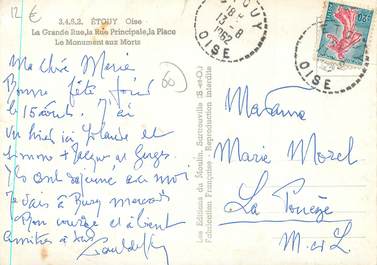 12 €
3.4.5.2. ÉTOUY Oise
La Grande Rue, la Rue Principale, la Place
Le Monument aux Morts
Ma Chère Marie
Bonne fête pour
le 15 août. J'ai
vu hier ici Yolande et
Simone +
Ils ont déjeuné avec moi
Je vais à Bury mercredi
Bon courage et à bientôt
Amitiés à tous
60
Les Editions du Moulin, Sartrouville (S.-et-O.)
Fabrication Française - Reproduction Interdite
ETOUY
18 H
13-8
1962
OISE
OISE
Madame
Marie Morel
La Pouëze
M. et L.